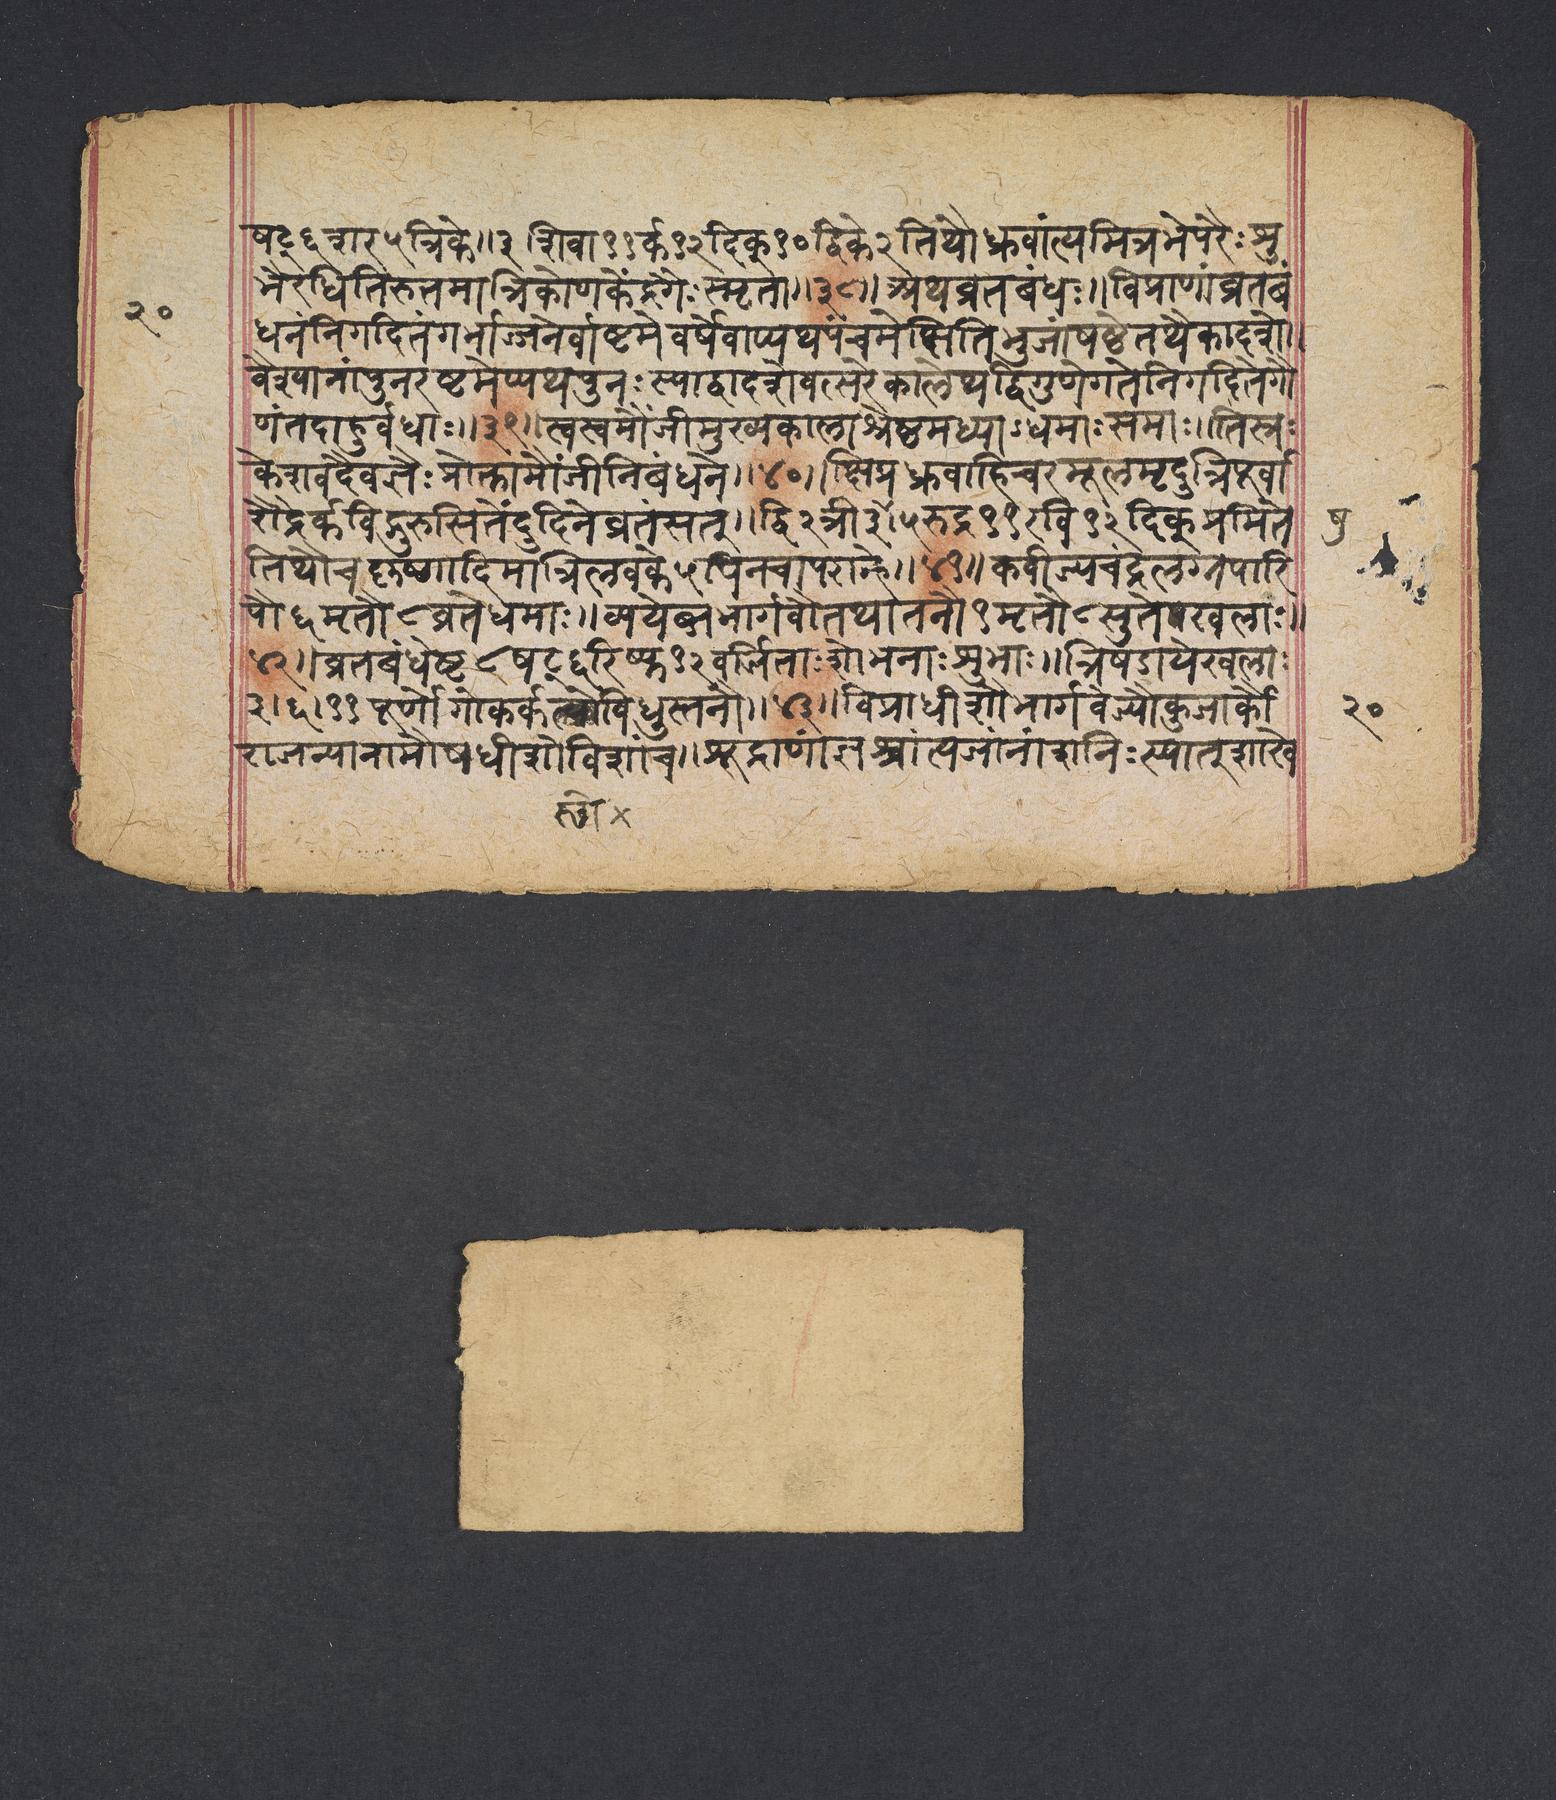 षट्६शर५त्रिके॥३।शिवा११र्क१२दिक्१०द्विके२तिथौध्रुवांत्यमित्रभेपरैःशु
भैरधितिरुत्तमात्रिकोणकेंद्रगैःस्मृता॥३८॥अथव्रतबंधः॥विप्राणांव्रतबं
२०
धनंनिगदितंगर्भाज्जनेर्वाष्टमेवर्षेवाप्यथपंचमेक्षितिभुजांषष्ठेतथैकादशे॥
वैश्यानांपुनरष्टमेप्यथपुनःस्याद्वादशेवत्सरेकालेथद्विगुणेगतेनिगदितेगौ
णंतदाहुर्बुधाः॥३९॥त्वस्वमौंजीमुख्यकालाश्रैष्ठमध्याऽधमाःसमाः॥तिस्रः
केशवदैवज्ञैःप्रोक्तामौंजीनिबंधने॥४०॥क्षिप्रध्रुवाहिचरमूलमृदुत्रिपूर्वा
रौद्रेर्कविद्गुरुसितेंदुदिनेव्रतंसत्॥द्वि२त्री३।५रुद्र११रवि१२दिक्प्रमिते
षु
तिथौचकृष्णादिमात्रिलवके५पिनचापरान्हे॥४१॥कवीज्यचंद्रलग्नपारि
पौ६मृतौ८व्रतेधमाः॥व्ययेब्जभार्गवौतथातनौ१मृतौ८सुतेखलाः॥
४२॥व्रतबंधेष्ट८षट्६रिष्फ१२वर्जिताःशोभनाःशुभाः॥त्रिषडायेखलाः
३।६।११पूर्णोगोकर्कस्थोविधुस्तनौ॥४३॥विप्राधीशौभार्गवेज्यौकुजार्कौ
२०
राजन्यानामोषधीशोविशांच॥शूद्राणांज्ञश्चांत्यजांनांशनिःस्यात्शाखे